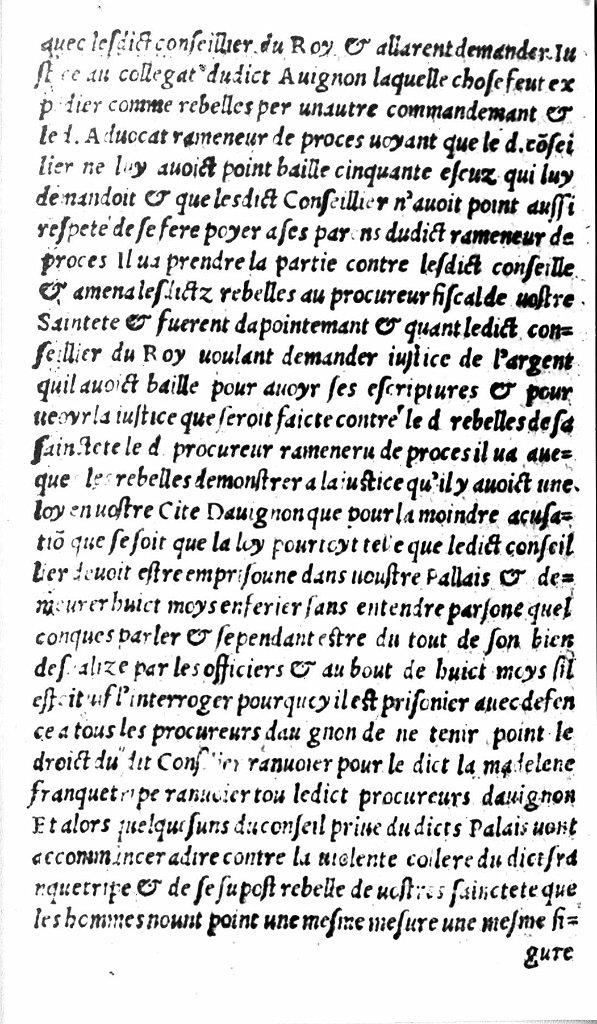 auec lesdict conseillier du Roy & allarent demander Iu
st ce au collegat dudict Auignon laquelle chose feut ex
p dier comme rebelles per unautre commandemant &
le d. Aduocat rameneur de proces uoyant que le d. cõsei
lier ne luy auoict point baille cinquante escuz qui luy
demandoit & que lesdict Conseillier n'auoit point aussi
respeté de se fere poyer a ses par ns dudict rameneur de
proces Il ua prendre la partie contre lesdict conseille
& amena lesdictz rebelles au procureur fiscal de uostre
Saintete & fuerent dapointemant & quant ledict con=
seillier du Roy uoulant demander iustice de l'argent
quil auoict baille pour auoyr ses escriptures & pour
ueoyr la iustice que seroit faicte contre le d rebelles de sa
sainctete le d. procureur rameneru de proces il ua aue=
que les rebelles demonstrer a la iustice qu'il y auoict une
loy en uostre Cite Dauignon que pour la moindre acusa=
tiõ que se soit que la loy pourtoyt telle que ledict conseil
lier deuoit estre emprisoune dans uoustre Pallais & de=
meurer huict moys enferier sans entendre parsone quel
conques parler & sependant estre du tout de son bien
des alize par les officiers & au bout de huict moys sil
est it uif l'interroger pourquoy il est prisonier auec defen
ce a tous les procureurs dau gnon de ne tenir point le
droict du dit Cons l ier ranuoier pour le dict la madelene
franquetripe ranuoier tou ledict procureurs dauignon
Et alors quelqu'suns du conseil priue du dicts Palais uont
accommancer a dire contre la uiolente collere du dict fra
nquetripe & de se supost rebelle de uostres sainctete que
les hommes nount point une mesme mesure une mesme fi=
gure